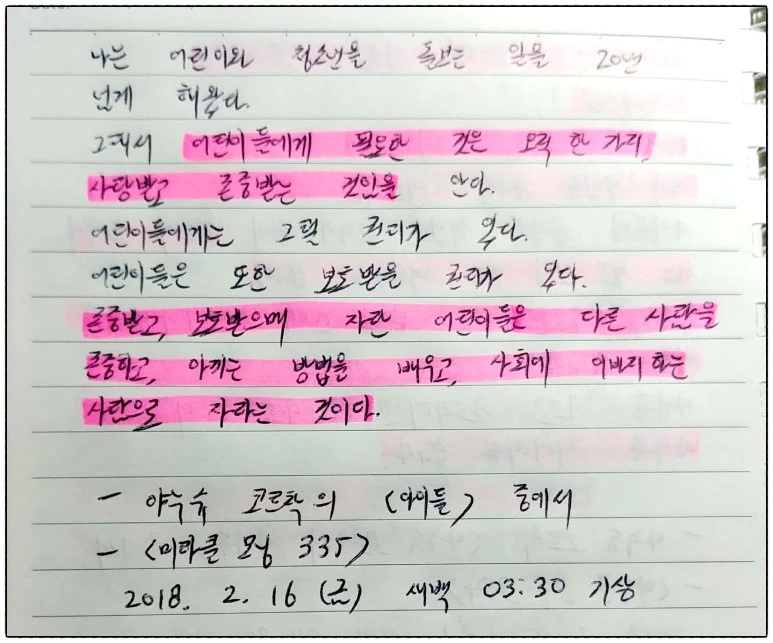 나는 어린이와 청소년을 돌보는 일을 20년
넘게 해왔다.
그래서 어린이들에게 필요한 것은 오직 한 가지,
사랑받고 존중받는 것임을 안다.
어린이들에게는 그럴 권리가 있다.
어린이들은 또한 보호받을 권리가 있다.
존중받고, 보호받으며 자란 어린이들은 다른 사람을
존중하고, 아끼는 방법을 배우고, 사회에 이바지하는
사람으로 자라는 것이다.
- 야누슈 코르착의 <아이들> 중에서
- <미라클 모닝 335>
2018. 2. 16 (금) 새벽 03:30 기상